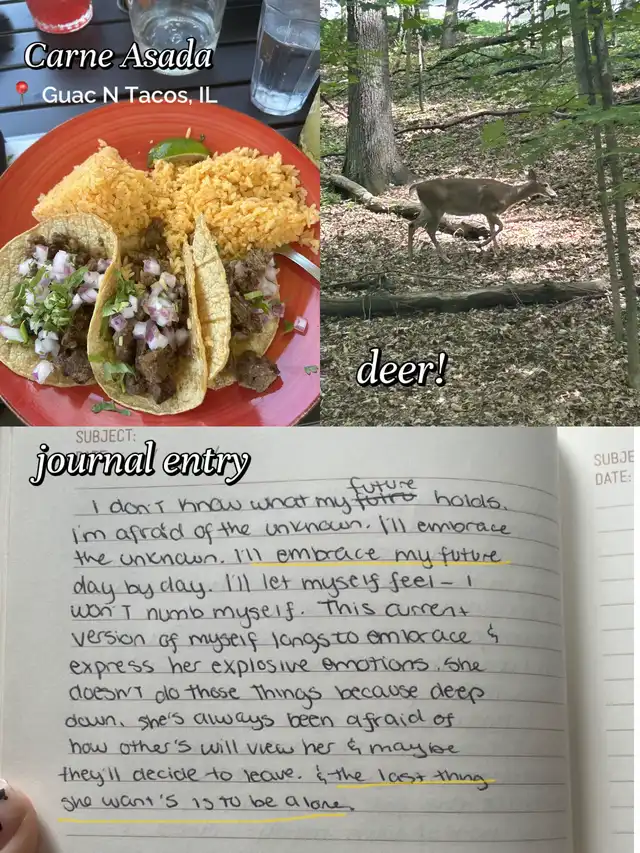 Carne Asada
📍 Guac N Tacos, IL
deer!
SUBJECT:
journal entry
SUBJE
DATE:
future
I don't know what my futre holds.
I'm afraid of the unknown. I'll embrace
the unknown. I'll embrace my future
day by day. I'll let myself feel – I
won't numb myself. This current
version of myself longs to embrace &
express her explosive emotions. She
doesn't do those things because deep
down, she's always been afraid of
how other's will view her & maybe
they'll decide to leave. & the last thing
she want's is to be alone.